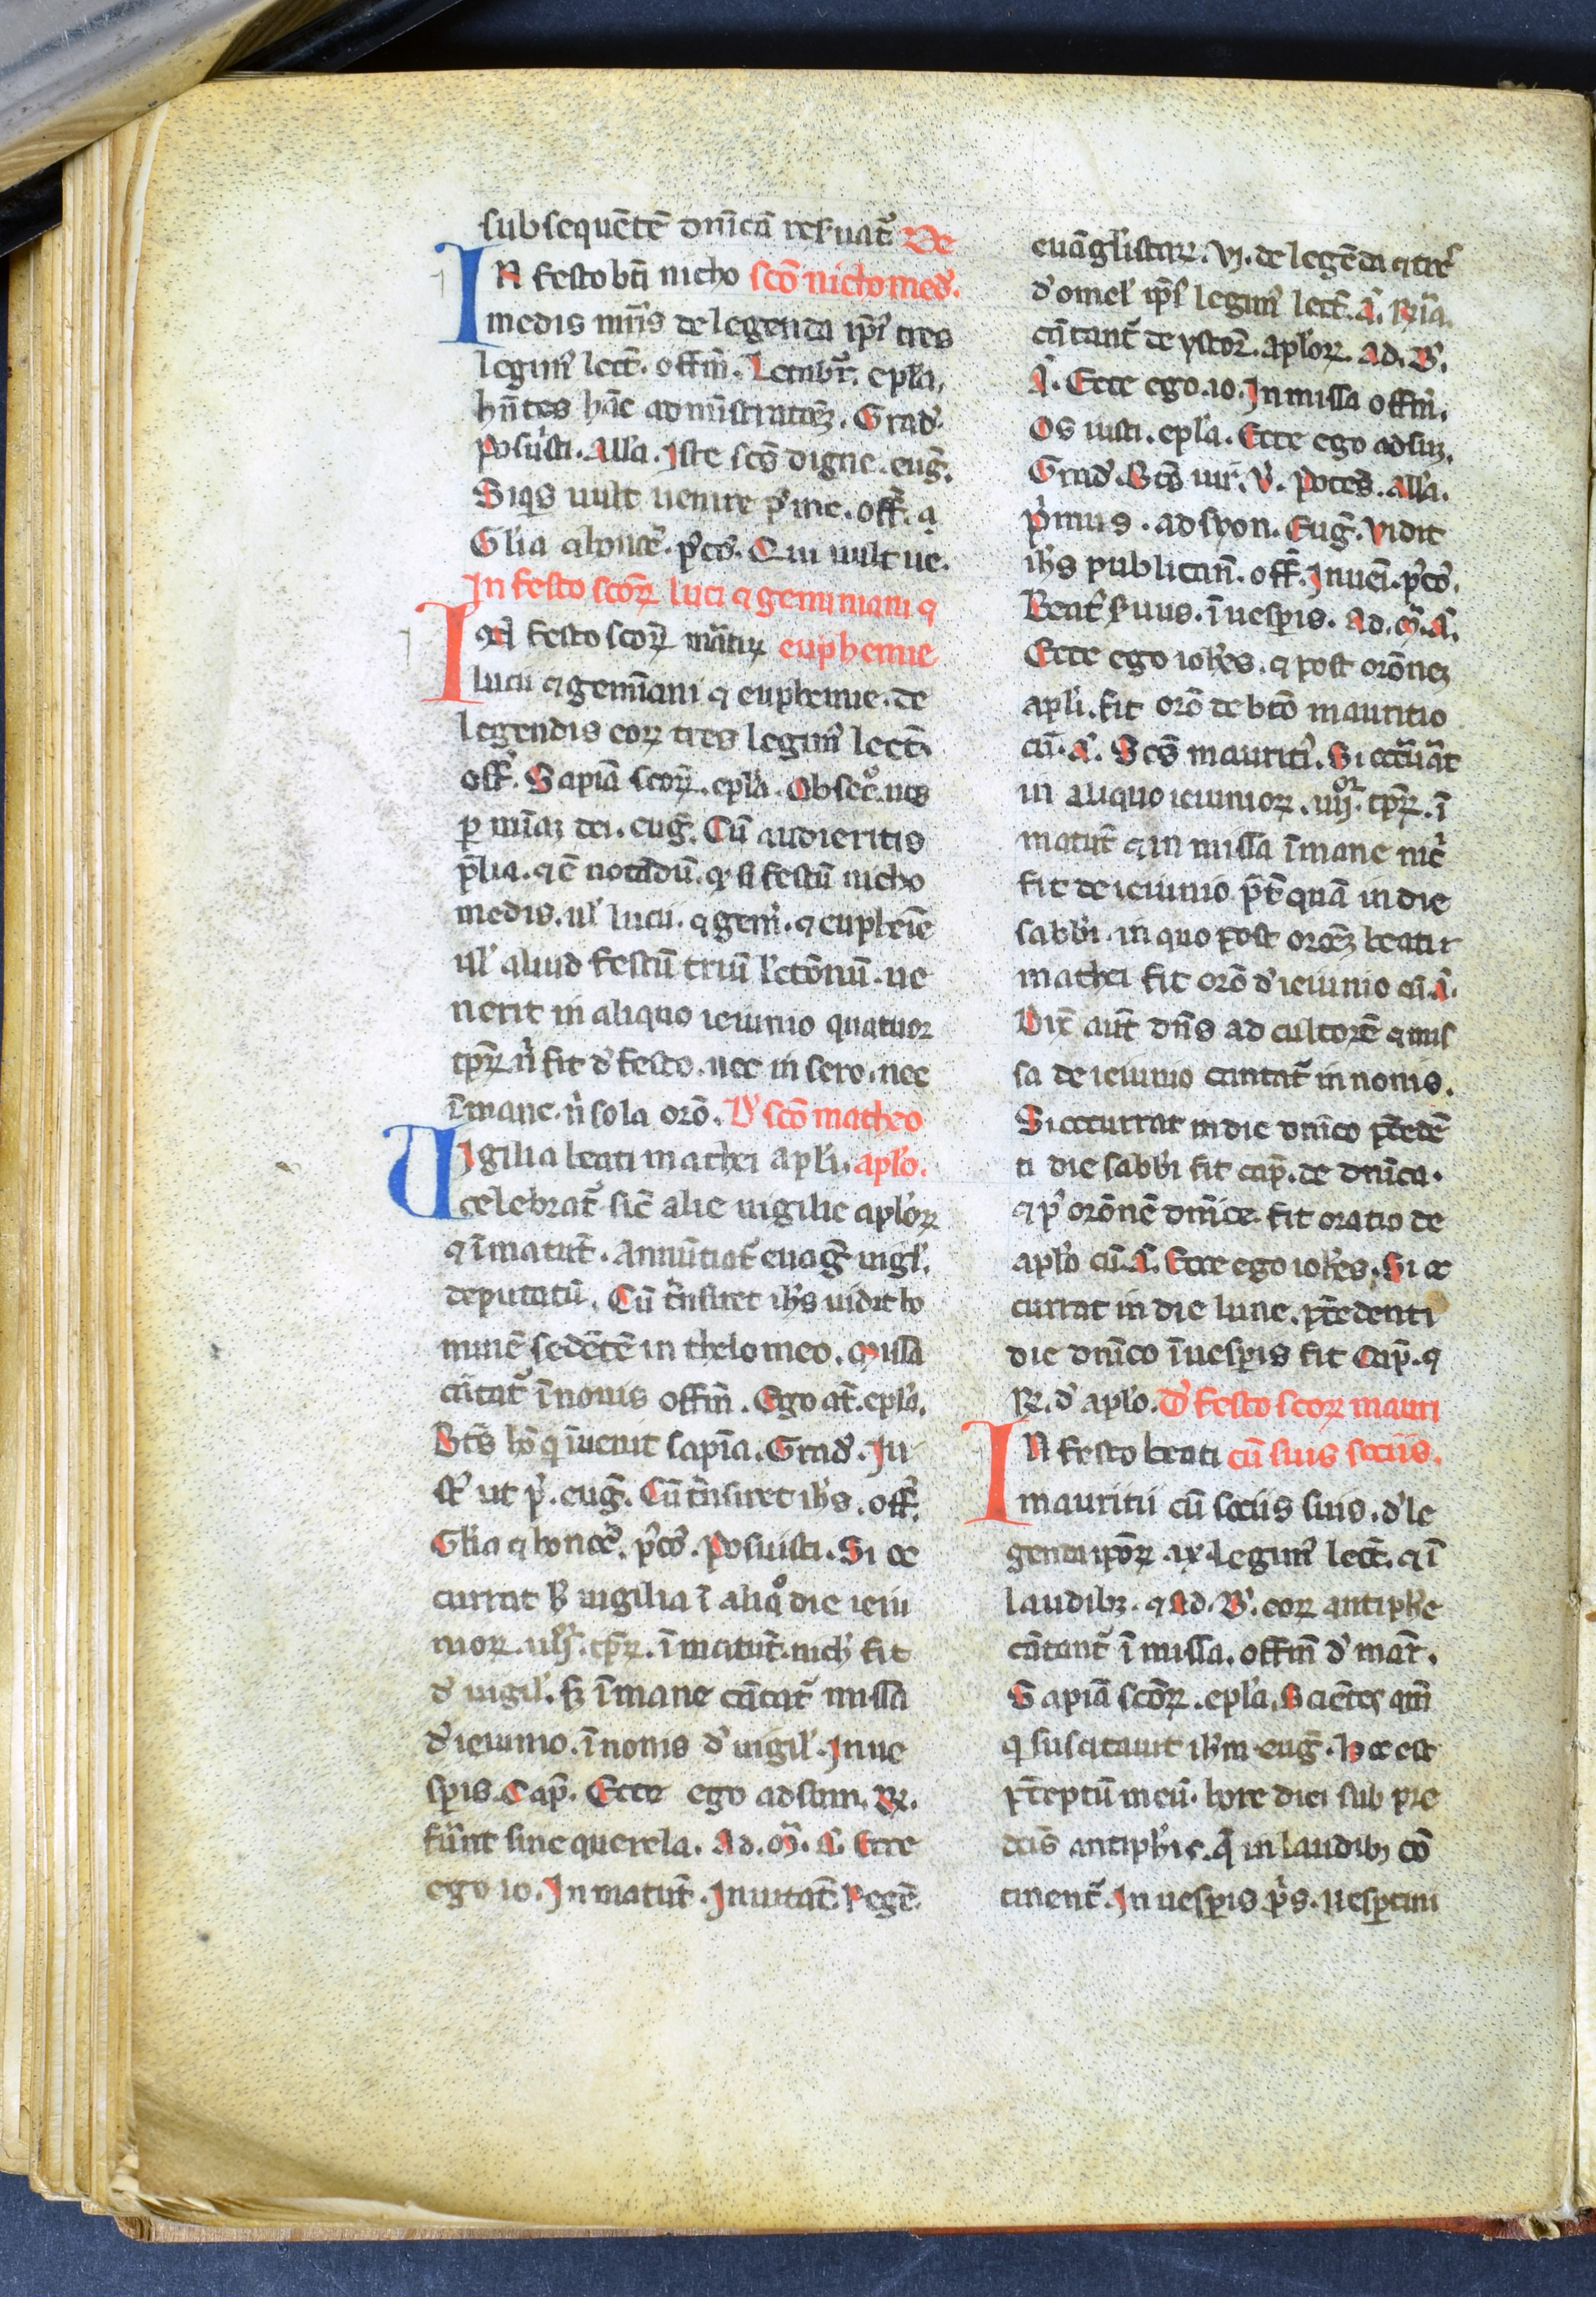 subsequētē dnīcā reseruat᷑. De
IN festo bt̄i nicho scō nichomed᷒.
medis mr̄is de legenda ip̄i᷒ tres
legunt᷑ lect̄. offm̄. Letabit᷑. epl̄a.
hn̄tes hāc administratōꝫ. Grad᷒.
Posuisti. All̓a. Iste scs̄ digne. euḡ.
Siqis uult uenire p᷒ me. off̄. ⁊
Gl̓ia ⁊ honor̄. p᷒cō. Qui uult ue.
In festo scōꝝ luci ⁊ geminiani ⁊
IN festo scōꝝ mart̄iꝝ euphemie
lucii ⁊ gemīani ⁊ euphemie. de
legendis eoꝝ tres legunt᷑ lect̄.
off᷒. Sapiā scōꝝ. epl̓a. Obsec̓o uos
ꝑ mīaꝫ dei. euḡ. Cū audieritis
p̄lia. ⁊ ē notādū. ꝙ si festū nicho
medis. ul̓ lucii. ⁊ gem̓. ⁊ euphēie
ul̓ aliud festū triū lectōnū. ue
nerit in aliquo ieiunio quatuor
tp̄ꝝ n̄ fit d᷒ festo. nec in sero. nec
ī mane. n̓ sola orō. D᷒ scō matheo
Uigilia beati mathei apl̓i. apl̓o.
celebrat᷑. sic̄ alie uigilie apl̓oꝝ
⁊ ī matut̄. Annūtiat᷑ euāḡ uigl̓.
deputatū. Cū t̄nsiret ih̄s uidit ho
minē sedētē in theloneo. Missa
cātat᷑ ī nonis offm̄. Ego at̄. epl̓a.
Bt̄s hō q̓ īuenit sapīa. Grad᷒. Iu
st᷒ ut p᷒. euḡ. Cū t̄nsiret ih̄s. off̄.
Gl̓ia ⁊ honor̄. p᷒cō. Posuisti. Si oc
currat h᷒ uigilia ī aliqͦ die ieiu
nioꝝ. iiijoꝝ. tp̄ꝝ. ī matut̄. nich̓ fit
d᷒ uigil̓. sꝫ ī mane cātat᷑ missa
d᷒ ieiunio. ī nonis d᷒ uigil̓. In ue
sp̄is. Cap̄. Ecce ego adsum. ℟.
fūnt sine querela. Ad. m̄. a᷒. Ecce
ego io. In matut̄. Inuitat̄. Regē.
euāgl̓istaꝝ. vj. de legēda ⁊ tres
d᷒ omel̓ ip̄i᷒ legunt᷑ lect̄. a᷒. ℟ia.
cātant᷑ de ystor̄. apl̓oꝝ. Ad. B᷒.
a᷒. Ecce ego. io. In missa offm̄.
Os iusti. epl̓a. Ecce ego adsuꝫ.
Grad᷒. Bt̄s uir. V᷒. Potēs. All̓a.
Primus. ad syon. Euḡ. Vidit
ih̄s publicanū. off̄. Inueni. p᷒cō.
Beat᷒ seruus. ī uesꝑis. Ad. m̄. a᷒.
Ecce ego ioh̄es. ⁊ post orōneꝫ
apl̓i. fit orō de btō mauritio
cū. a᷒. Scs̄ mauriti᷒. Si occurrāt
in aliquo ieiunioꝝ. iiijor. tp̄ꝝ. ī
matut̄ ⁊ in missa ī mane nic̓
fit de ieiunio p̄t̓quā in die
sabb̓i. in quo post orōeꝫ beati
mathei fit orō d᷒ ieiunio cū. a᷒.
Dix̄ aut̄ dn̄s ad cultorē ⁊ mis
sa de ieiunio cantat᷑ in nonis.
Si occurrat in die dnīco p̄cedē
ti die sabb̓i fit cap̄. de dnīca.
⁊ p᷒ orōnē dnīce. fit oratio de
apl̓o cū. a᷒. Ecce ego ioh̄es. Si oc
currat in die lune. p̄cedenti
die dnīco ī uesꝑis fit Cap̄. ⁊
℟. d᷒ apl̓o. D᷒ festo scōꝝ mauri
IN festo beati cū suis sociis.
mauritii cū sociis suis. d᷒ le
genda ip̄oꝝ. ix. legunt᷑ lect̄. ⁊ ī
laudibꝫ. ⁊ Ad. B᷒. eoꝝ antiph̓e
cātant᷑ ī missa. offm̄ d᷒ mar̄.
Sapiā scōꝝ. epl̓a. Scientes qm̄
q̓ suscitauit ih̄m. euḡ. Hoc est
p̄ceptū meū. hore diei sub pre
dcīs antiph̓is. q̄ in laudibꝫ cō
tinent᷑. In uesꝑis p᷒s. uesꝑtini